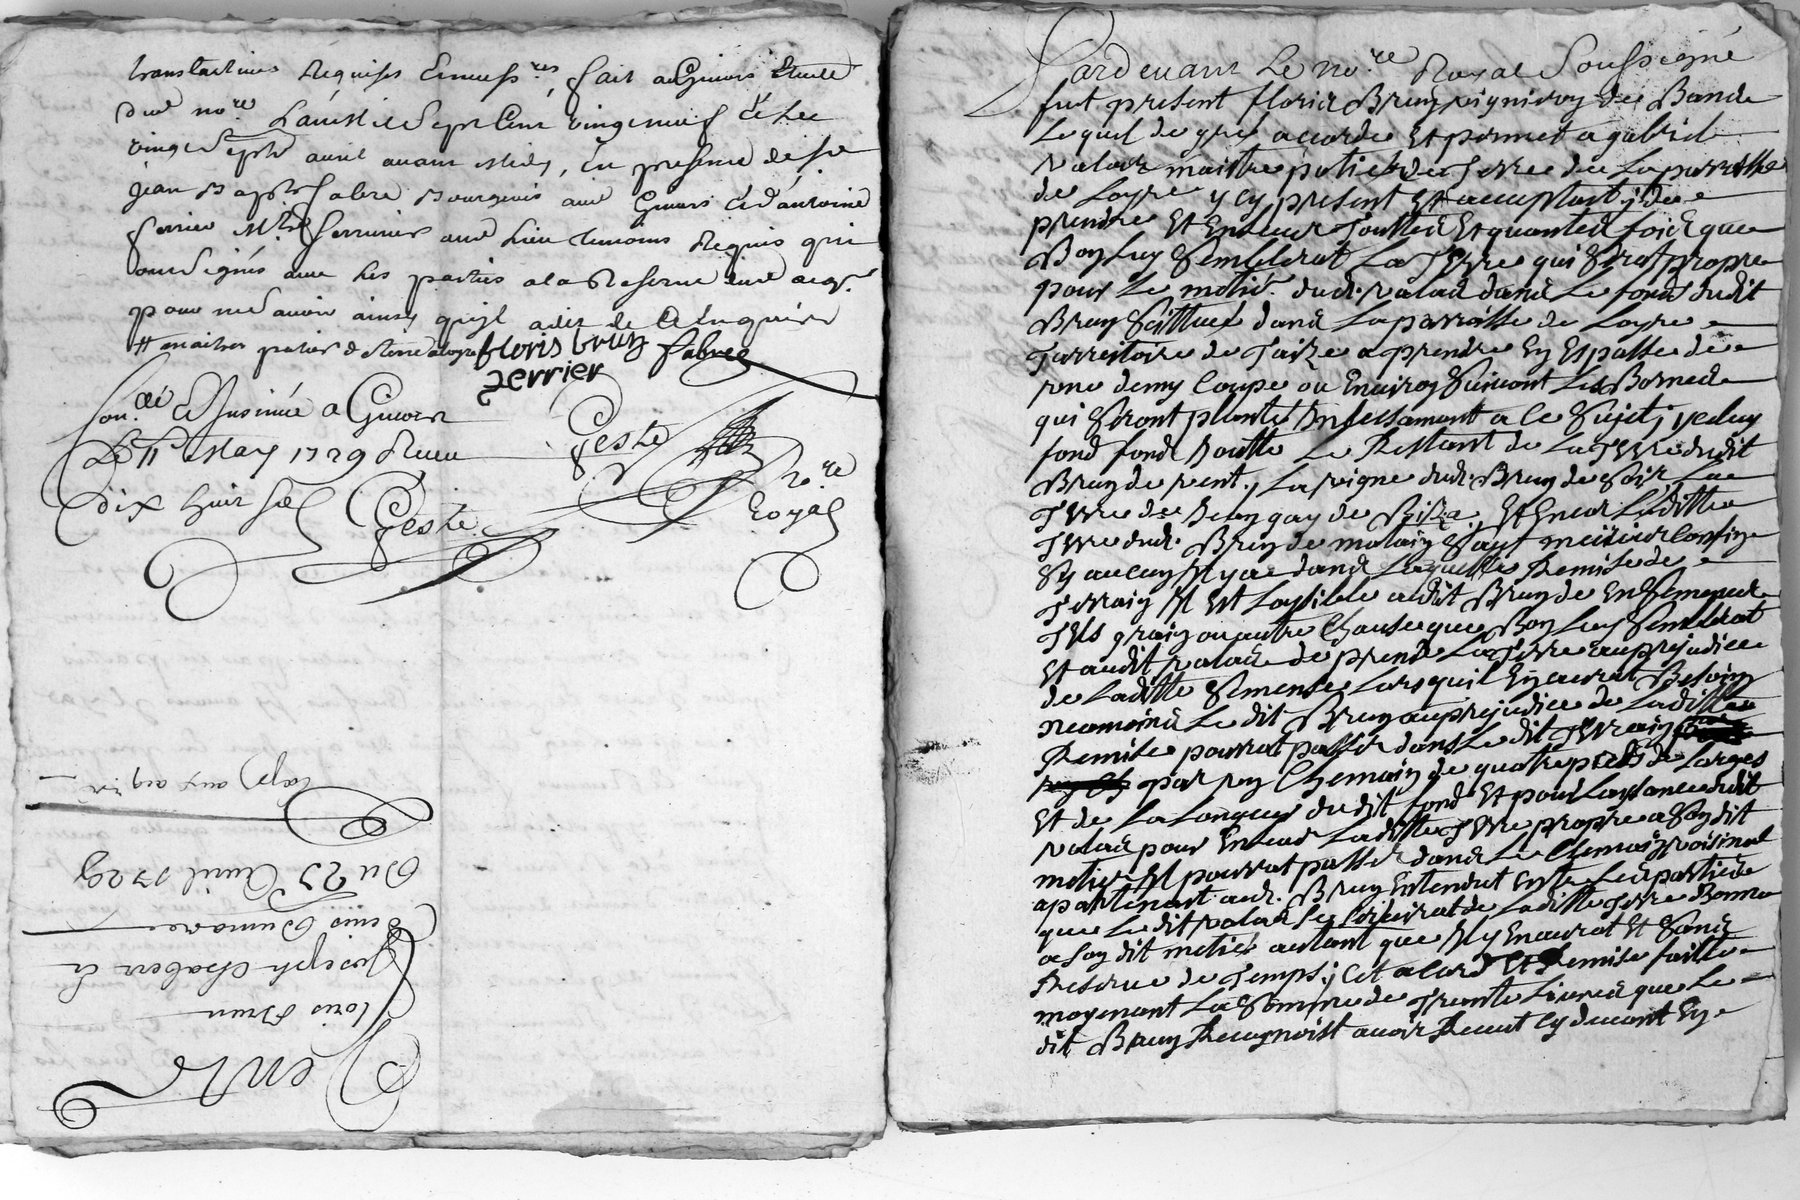 translactives Requises Et fait a Givors Etude
dud nore L'an mil Sept Cent vingt neuf Et Le
vingt Sept avril avant Midy, En presence de Sr
jean Baptte fabre Bourgeois aud Givors Et d'antoine
ferrier Mtre Serrurier aud Lieu temoins Requis qui
ont Signés avec Les parties a la Reserve dud
pour ne L'avoir ainsy qu'il a dit de Ce Enquis
# maitre potier de terre floris bruy fabre
ferrier
Con.llé Et Insinué a Givors
Le 11e May 1729 Reçu
dix huit Sol
Geste
Geste
Nore
Royal
Vente
floris Brun
Joseph Chabert Et
Denis Dumarest
Du 27 Avril 1729
Pardevant Le nore Royal Soussigné
fut present floris Bruy vigniron de Bande
Lequel de gré accorde Et permet a gabriel
valard maitre potier de Terre de La parroisse
de Loyre y cy present Et acceptant, de
prendre Et Enlever Touttes Et quantes fois que
Bon Luy Semblerat La Terre qui Serat propre
pour Le metier dud. valard dans Le fond dudit
Bruy Scittué dans La parroisse de Loyre
Terrestoire de Taize a prendre En Espasse de
une demy Coupe ou Environ Suivant Les Bornes
qui Seront planté Incessamant a Ce Sujet,
fond Joutte Le Restant de La Terre dudit
Bruy de vent, La vigne dud. Bruy de Soir, La
Terre de de Bise Et Encor Laditte
Terre dud. Bruy de matain Sauf meilieur Confin
Sy aucuns Il y a dans Laquelle Remise de
Terrain Il Est Loysible audit Bruy de Ensemencer
Tels grain ou autre Chause que Bon Luy Semblerat
Et audit valard de prendre La Terre au prejudice
de Laditte Semense Lorsquil En aurat Besoin
neomoins Le dit Bruy au prejudice de Laditte
Remise pourrat passer dans Le dit Terrain
par un Chemain de quatre pieds de Larges
Et de La Longueur dudit fond Et pour Laysance dudit
valard pour Enlever Laditte Terre propre a Son dit
metier Il pourrat passer dans Le Chemain voisinal
apartenant aud. Bruy Entendut Entre Les parties
que Le dit valard Se Servirat de Laditte Terre Bonne
a Son dit metier autant que Il y En aurat Et Sans
Reserve de Temps, Cet acord Et Remise faitte
moyenant La Somme de Trente Livres que Le
dit Bruy Recognoist avoir Reçut Cy devant En